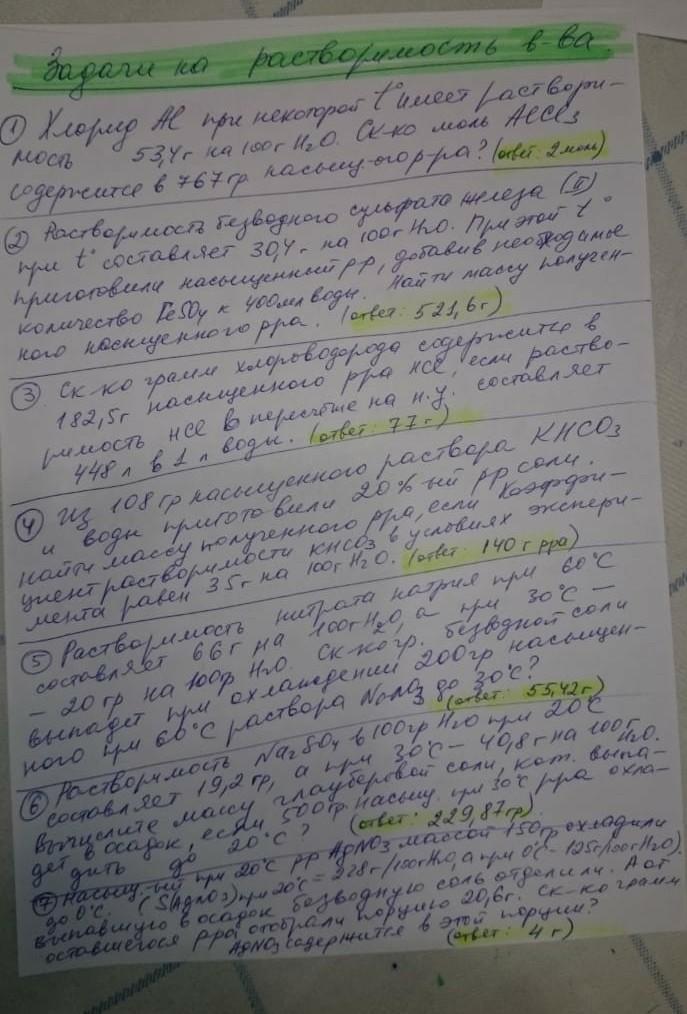 Задачи на растворимость в-ва.
① Хлорид Al при некоторой t° имеет раствори-
мость 53,4г на 100г H₂O. Ск-ко моль AlCl₃
содержится в 767гр. насыщ-ого р-ра? (ответ: 2моль)
② Растворимость безводного сульфата железа (II)
при t° составляет 30,4 г на 100г H₂O. При этой t°
приготовили насыщенный рр, добавив необходимое
количество FeSO₄ к 400мл воды. Найти массу получен-
ного насыщенного рра. (ответ: 521,6г)
③ Ск-ко грамм хлороводорода содержится в
182,5г насыщенного рра HCl, если раство-
римость HCl в пересчёте на н.у. составляет
448 л в 1 л воды. (ответ: 77г)
④ Из 108 гр насыщенного раствора KHCO₃
и воды приготовили 20%-ый рр соли.
Найти массу полученного рра, если коэффи-
циент растворимости KHCO₃ в условиях экспери-
мента равен 35г на 100г H₂O. (ответ: 140г рра)
⑤ Растворимость нитрата натрия при 60°C
составляет 66г на 100гH₂O, а при 30°C –
– 20 гр на 100гр H₂O. Ск-ко гр. безводной соли
выпадет при охлаждении 200гр насыщен-
ного при 60°C раствора NaNO₃ до 30°C?
(ответ: 55,42г)
⑥ Растворимость Na₂SO₄ в 100гр H₂O при 20°C
составляет 19,2 гр, а при 30°C – 40,8г на 100г H₂O.
Вычислите массу глауберовой соли, кот. выпа-
дет в осадок, если 500гр. насыщ. при 30°C рра охла-
дить до 20°C? (ответ: 229,87гр)
⑦ Насыщ-ый при 20°C рр AgNO₃ массой 150гр охладили
до 0°C. (S(AgNO₃)при 20°C = 228г/100гH₂O, а при 0°C – 125г/100гH₂O).
выпавшую в осадок безводную соль отделили. А от
оставшегося рра отобрали порцию 20,6г. Ск-ко грамм
AgNO₃ содержится в этой порции?
(ответ: 4г)